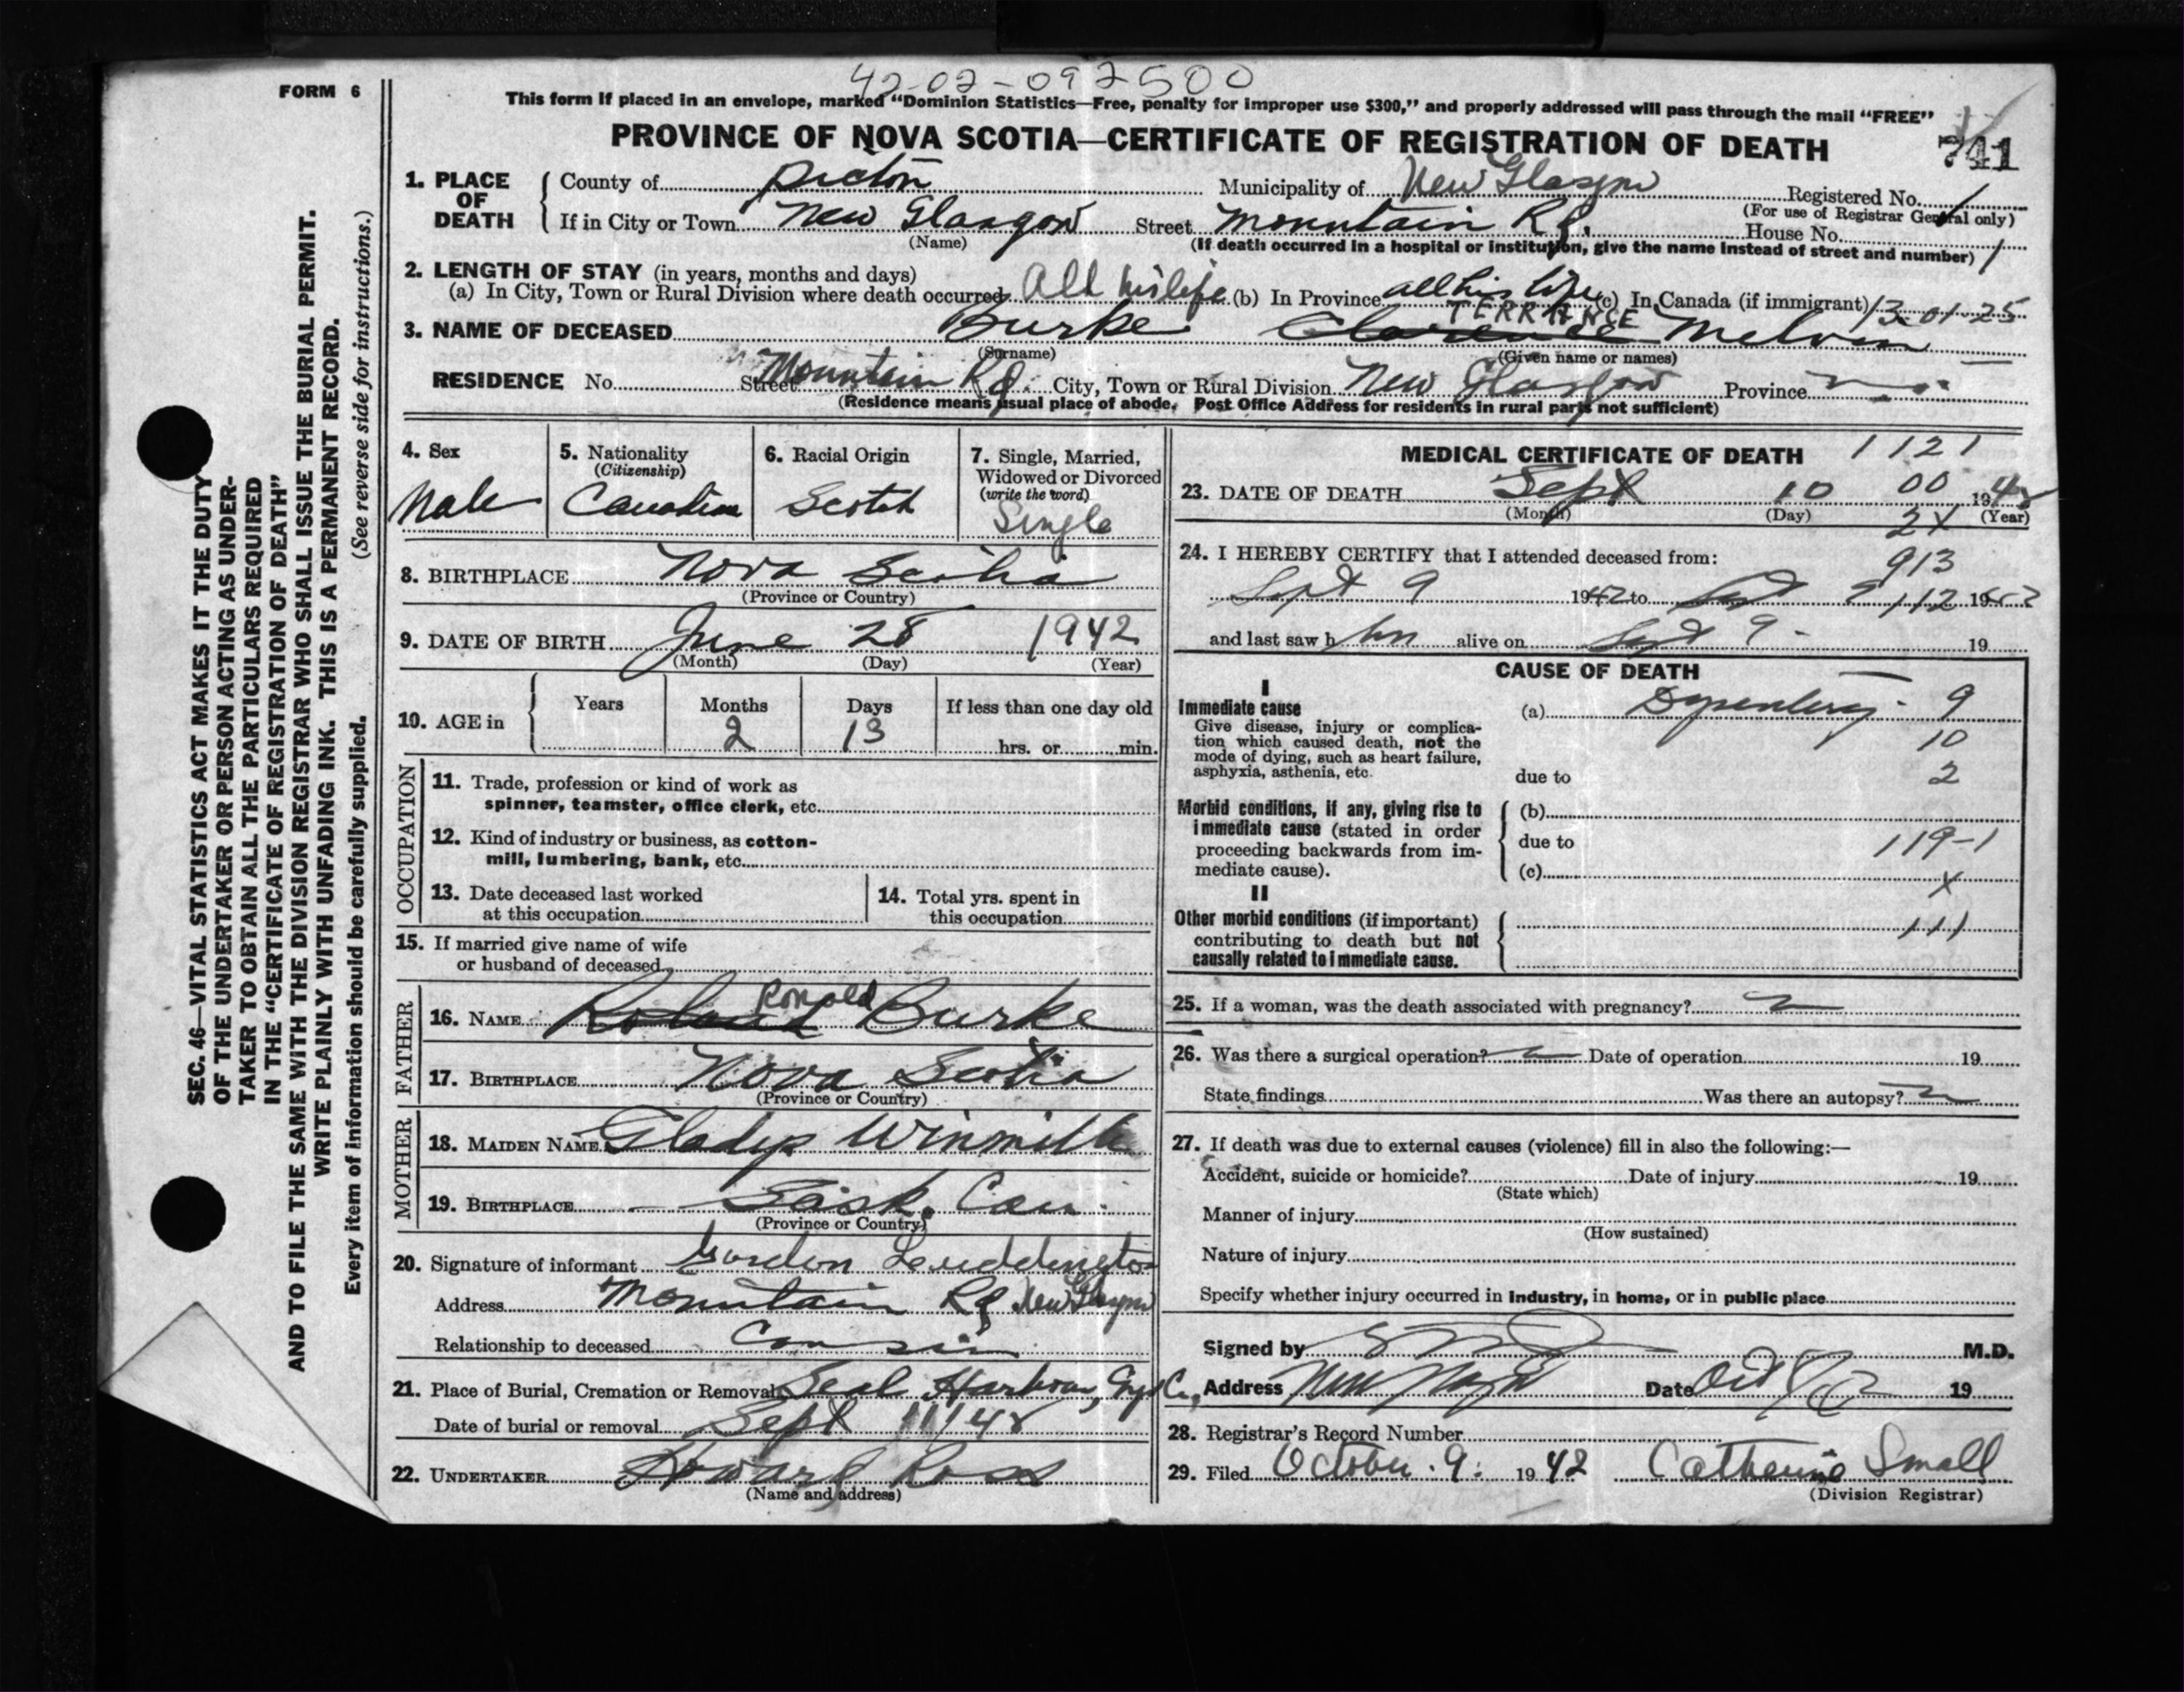 42-02-092500
FORM 6
This form if placed in an envelope, marked "Dominion Statistics—Free, penalty for improper use $300," and properly addressed will pass through the mail "FREE"
PROVINCE OF NOVA SCOTIA—CERTIFICATE OF REGISTRATION OF DEATH
741
1. PLACE OF DEATH
County of Pictou Municipality of New Glasgow Registered No.
(For use of Registrar General only)
If in City or Town New Glasgow Street Mountain Rd. House No.
(Name) (If death occurred in a hospital or institution, give the name instead of street and number)
2. LENGTH OF STAY (in years, months and days)
(a) In City, Town or Rural Division where death occurred All his life (b) In Province all his life (c) In Canada (if immigrant) 13-01-25
TERRANCE
3. NAME OF DECEASED Burke Clarence Melvin
(Surname) (Given name or names)
RESIDENCE No. Street Mountain Rd. City, Town or Rural Division New Glasgow Province
(Residence means usual place of abode. Post Office Address for residents in rural parts not sufficient)
4. Sex
Male
5. Nationality
(Citizenship)
Canadian
6. Racial Origin
Scotch
7. Single, Married,
Widowed or Divorced
(write the word)
Single
8. BIRTHPLACE Nova Scotia
(Province or Country)
9. DATE OF BIRTH June 28 1942
(Month) (Day) (Year)
10. AGE in
Years Months Days If less than one day old
2 13 hrs. or min.
OCCUPATION
11. Trade, profession or kind of work as
spinner, teamster, office clerk, etc.
12. Kind of industry or business, as cotton-
mill, lumbering, bank, etc.
13. Date deceased last worked
at this occupation
14. Total yrs. spent in
this occupation
15. If married give name of wife
or husband of deceased
FATHER
Ronald
16. NAME Roland Burke
17. BIRTHPLACE Nova Scotia
(Province or Country)
MOTHER
18. MAIDEN NAME Gladys Winmill
19. BIRTHPLACE Sask. Can.
(Province or Country)
20. Signature of informant Gordon Leuddington
Address Mountain Rd New Glasgow
Relationship to deceased Cousin
21. Place of Burial, Cremation or Removal Seal Harbour, Guys Co.
Date of burial or removal Sept 11/42
22. UNDERTAKER Howard Ross
(Name and address)
MEDICAL CERTIFICATE OF DEATH 1121
23. DATE OF DEATH Sept 10 00 1942
(Month) (Day) 2X (Year)
24. I HEREBY CERTIFY that I attended deceased from:
913
Sept 9 1942 to Sept 9 112 1942
and last saw him alive on Sept 9 - 19
CAUSE OF DEATH
I
Immediate cause
Give disease, injury or complica-
tion which caused death, not the
mode of dying, such as heart failure,
asphyxia, asthenia, etc.
(a) Dysentery - 9
10
due to 2
Morbid conditions, if any, giving rise to
immediate cause (stated in order
proceeding backwards from im-
mediate cause).
(b)
due to 119-1
(c) X
II
Other morbid conditions (if important)
contributing to death but not
causally related to immediate cause.
111
25. If a woman, was the death associated with pregnancy?
26. Was there a surgical operation? Date of operation 19
State findings Was there an autopsy?
27. If death was due to external causes (violence) fill in also the following:—
Accident, suicide or homicide? Date of injury 19
(State which)
Manner of injury
(How sustained)
Nature of injury
Specify whether injury occurred in Industry, in home, or in public place
Signed by M.D.
Address New Glasgow Date Oct 19
28. Registrar's Record Number
29. Filed October 9. 1942 Catherine Small
(Division Registrar)
SEC. 46—VITAL STATISTICS ACT MAKES IT THE DUTY
OF THE UNDERTAKER OR PERSON ACTING AS UNDER-
TAKER TO OBTAIN ALL THE PARTICULARS REQUIRED
IN THE "CERTIFICATE OF REGISTRATION OF DEATH"
AND TO FILE THE SAME WITH THE DIVISION REGISTRAR WHO SHALL ISSUE THE BURIAL PERMIT.
WRITE PLAINLY WITH UNFADING INK. THIS IS A PERMANENT RECORD.
Every item of information should be carefully supplied. (See reverse side for instructions.)